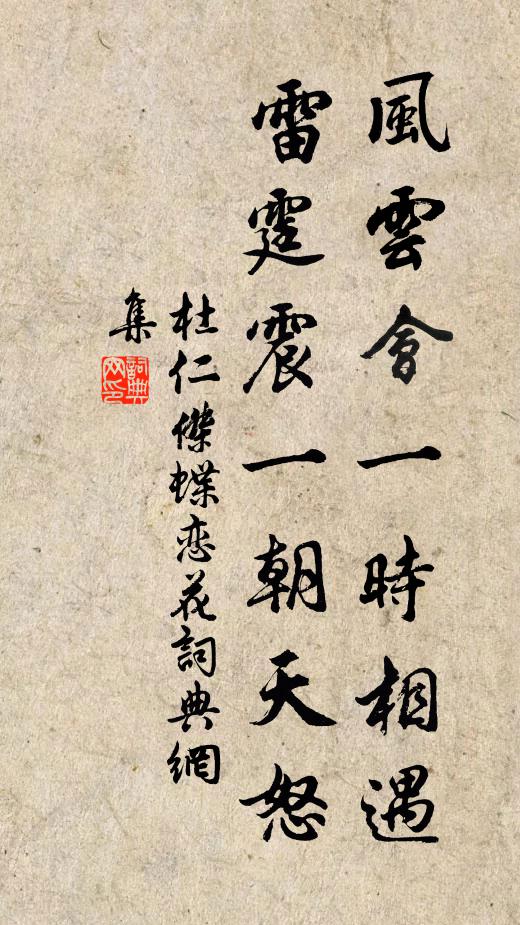 風雲會一時相遇
雷霆震一朝天怒
杜仁傑蝶恋花詞典網
集
詞典
网印